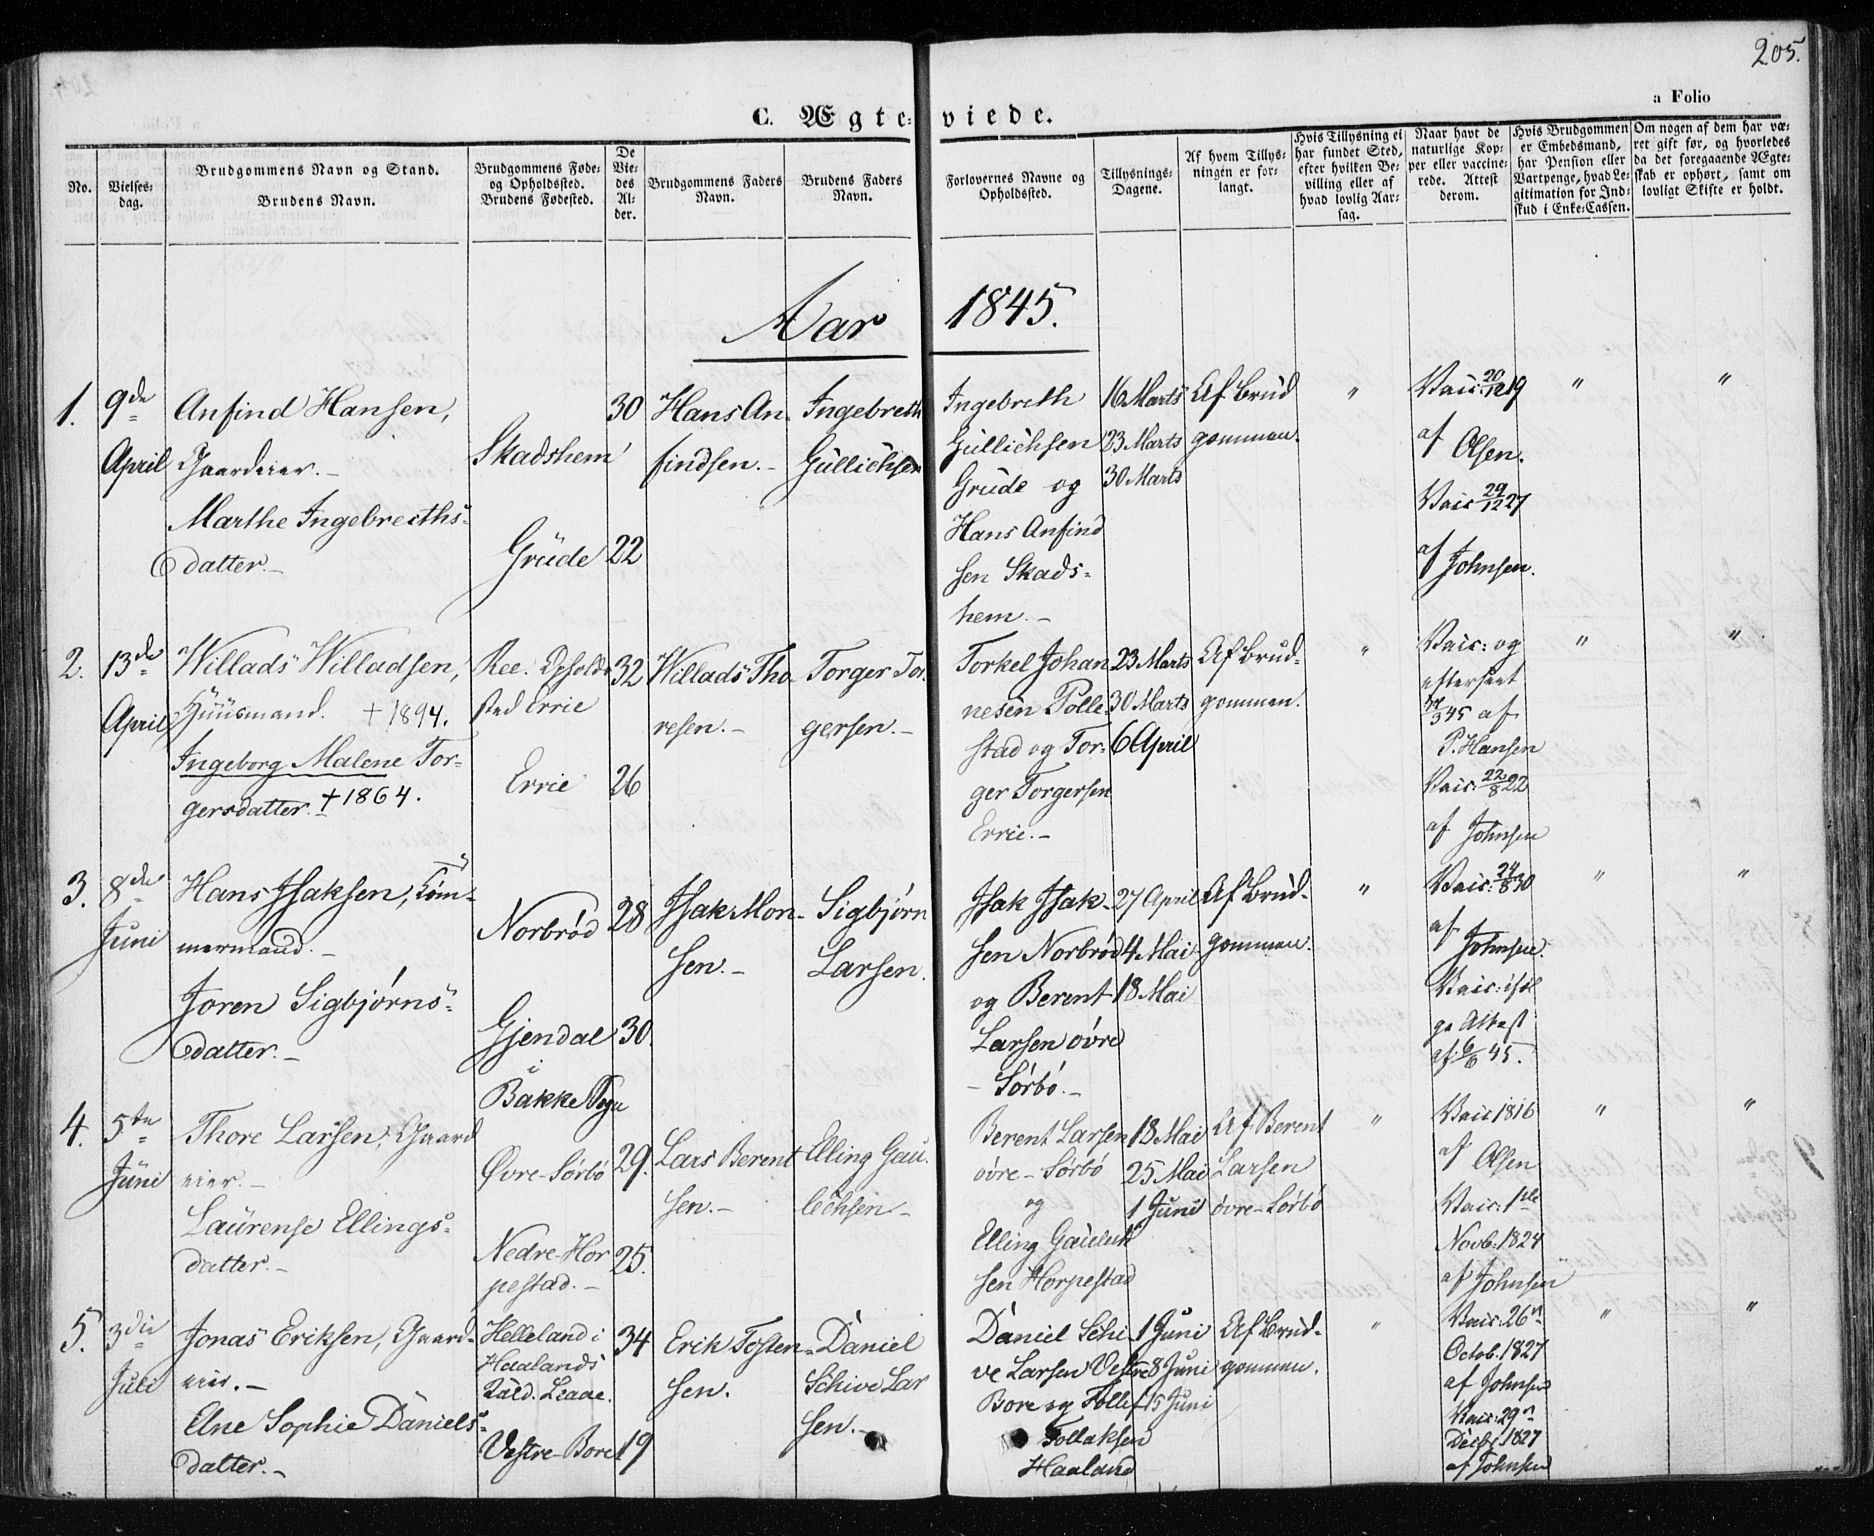 205.
a Folio
C. Ægte-viede.
No.
Vielses-
dag.
Brudgommens Navn og Stand.
Brudens Navn.
Brudgommens Føde-
og Opholdssted.
Brudens Fødested.
De
Vie-
des
Al-
der.
Brudgommens Faders
Navn.
Brudens Faders
Navn.
Forlovernes Navne og
Opholdssted.
Tillysnings-
Dagene.
Af hvem Tillys-
ningen er for-
langt.
Hvis Tillysning ei
har fundet Sted,
efter hvilken Be-
villing eller af
hvad lovlig Aar-
sag.
Naar havt de
naturlige Kop-
per eller vaccine-
rede. Attest
derom.
Hvis Brudgommen
er Embedsmand,
har Pension eller
Vartpenge, hvad Le-
gitimation for Ind-
skud i Enke-Cassen.
Om nogen af dem har væ-
ret gift før, og hvorledes
da det foregaaende Ægte-
skab er ophørt, samt om
lovligt Skifte er holdt.
Aar 1845.
1.
9de
April
Anfind Hansen,
Gaardeier.-
Marthe Ingebreths-
datter.-
Skadshem
Grude
30
22
Hans An-
findsen.-
Ingebreth
Gullichsen
Ingebreth
Gullichsen
Grude og
Hans Anfind
sen Skads-
hem.-
16 Marts
23 Marts
30 Marts
Af Brud
gommen.
"
Vaic: 20/12 19
af Olsen.
Vaic 29/12 27
af Johnsen.
"
"
2.
13de
April
Willads Willadsen,
Huusmand. +1894.
Ingeborg Malene Tor-
gersdatter. +1864.
Ree. Opholds
sted Errie
Errie
32
26
Willads Tho-
resen.-
Torger Tor-
gersen.-
Torkel Johan
nesen Polle-
stad og Tor-
ger Torgersen
Errie.-
23 Marts
30 Marts
6 April
Af Brud-
gommen.
"
Vaic: og
efterseet
3 45 af
P. Hansen
Vaic: 22/8 22
af Johnsen
"
"
3.
8de
Juni
Hans Isaksen, Tøm-
mermand.-
Joren Sigbjørns-
datter.-
Norbrød
Gjendal
i
Bakke Sogn
28
30.
Isak Mon-
sen.-
Sigbjørn
Larsen.
Isak Isak-
sen Norbrød
og Berent
Larsen øvre
- Sørbø.-
27 April
4 Mai
18 Mai
Af Brud-
gommen.
"
Vaic: 24/8 30
af Johnsen.
Vaic: iføl
ge Attest
af 6/6 45.
"
"
4.
5te
Juni
Thore Larsen, Gaard
eier.-
Laurense Ellings-
datter.-
Øvre-Sørbø
Nedre-Hor
pestad.-
29.
25.
Lars Berent
sen.-
Elling Gau-
lechsen-
Berent Larsen
øvre-Sørbø
og
Elling Gaulech
sen Horpestad
18 Mai
25 Mai
1 Juni
Af Berent
Larsen
øvre-Sørbø
"
Vaic 1816
af Olsen
Vaic: 1ste
Novb: 1824
af Johnsen
"
"
5.
3die
Juli
Jonas Eriksen, Gaard-
eier.-
Ane Sophie Daniels-
datter.-
Helleland i
Haalands
Vestre-Bore
34
19
Erik Tosten-
sen.
Daniel
Schive Lar
sen.-
Daniel Schi-
ve Larsen Vestre
Bore og Tollef
Tollaksen
Haaland
1 Juni
8 Juni
15 Juni
Af Brud-
gommen.
"
Vaic: 26n
Octob. 1827
af Johnsen
Vaic: 29n
Decbr. 1827
af Johnsen
"
"